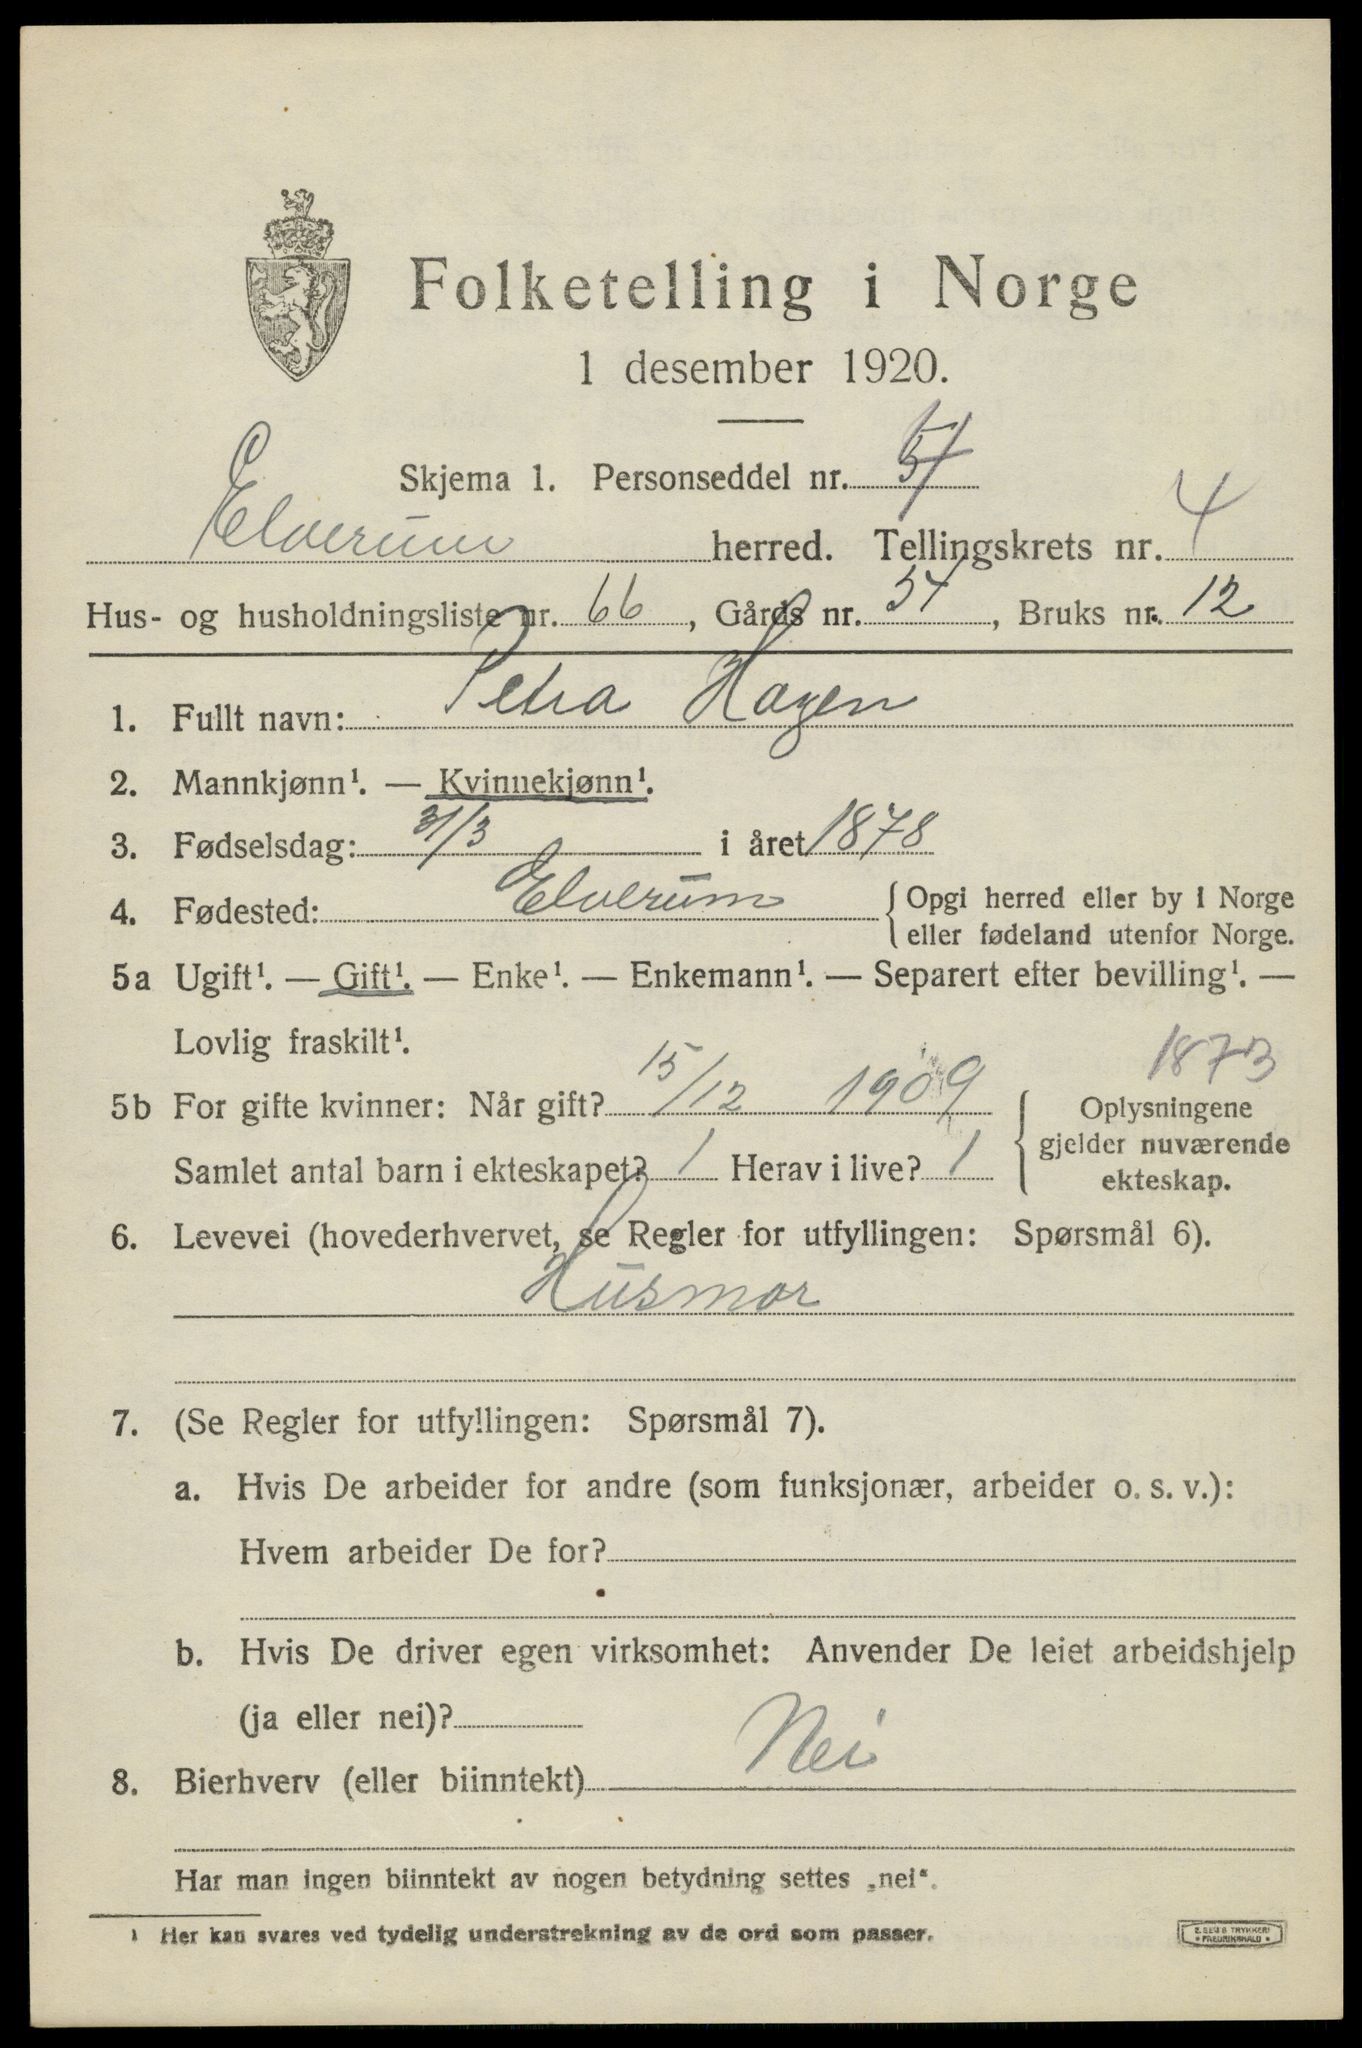 Folketelling i Norge
1 desember 1920.
Skjema 1. Personseddel nr.
Elverum herred. Tellingskrets nr. 4
Hus- og husholdningsliste nr. 66, Gårds nr. 54, Bruks nr. 12
1. Fullt navn: Petra Hagen
2. Mannkjønn¹. — Kvinnekjønn¹.
3. Fødselsdag: 31/3 i året 1878
4. Fødested: Elverum {Opgi herred eller by i Norge
eller fødeland utenfor Norge.
5a Ugift¹. — Gift¹. — Enke¹. — Enkemann¹. — Separert efter bevilling¹. —
Lovlig fraskilt¹.
1873
5b For gifte kvinner: Når gift? 15/12 1909 { Oplysningene
gjelder nuværende
Samlet antal barn i ekteskapet? 1 Herav i live? 1
ekteskap.
6. Levevei (hovederhvervet, se Regler for utfyllingen: Spørsmål 6).
Husmor
7. (Se Regler for utfyllingen: Spørsmål 7).
a. Hvis De arbeider for andre (som funksjonær, arbeider o. s. v.):
Hvem arbeider De for?
b. Hvis De driver egen virksomhet: Anvender De leiet arbeidshjelp
(ja eller nei)?
8. Bierhverv (eller biinntekt) Nei
Har man ingen biinntekt av nogen betydning settes „nei“.
¹ Her kan svares ved tydelig understrekning av de ord som passer.
E. SEM'S TRYKKERI
FREDRIKSHALD